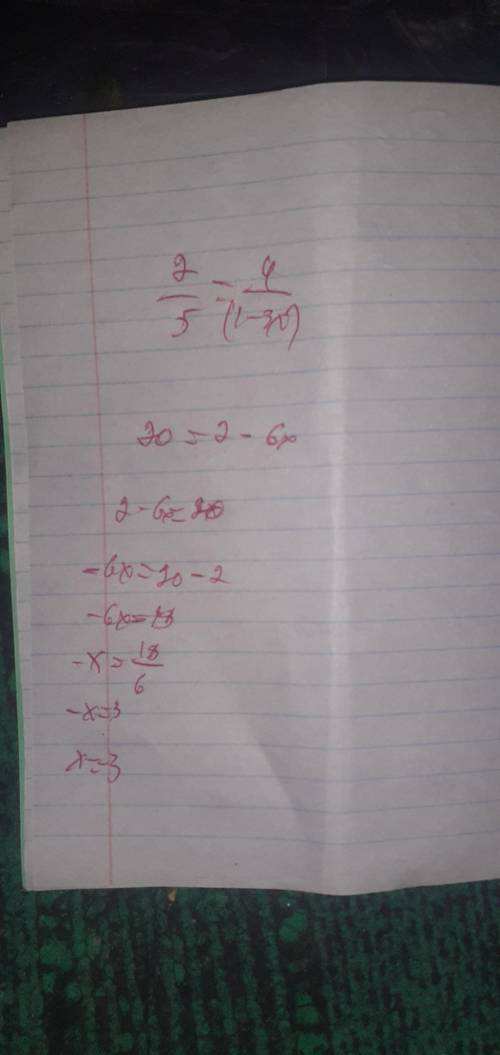 2/5 = 4/(1-3x)
20 = 2 - 6x
2 - 6x = 20
-6x = 20 - 2
-6x = 18
-x = 18/6
-x = 3
x = 3